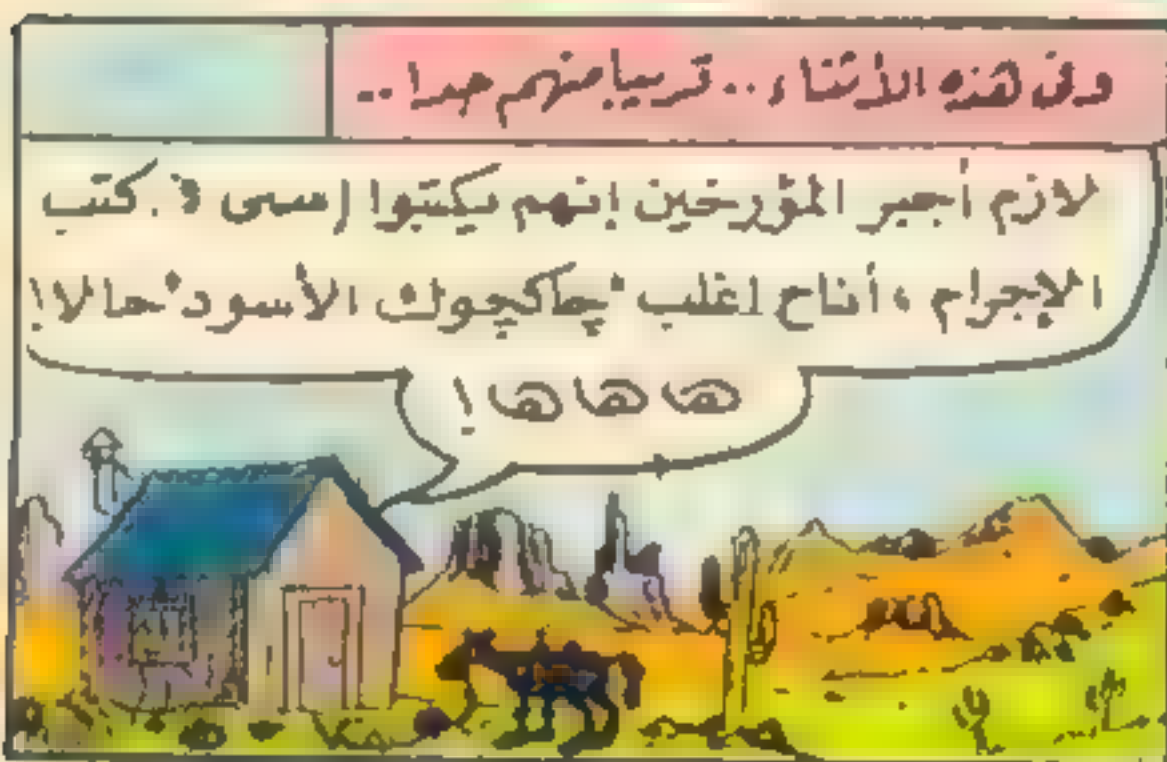 وفى هذه الأثناء .. قريبا منهم جدا ..
لازم أجبر المؤرخين إنهم يكتبوا إسمى فـ كتب
الإجرام ، أناح اغلب "چاكچوك الأسود" حالا !
ها ها ها !